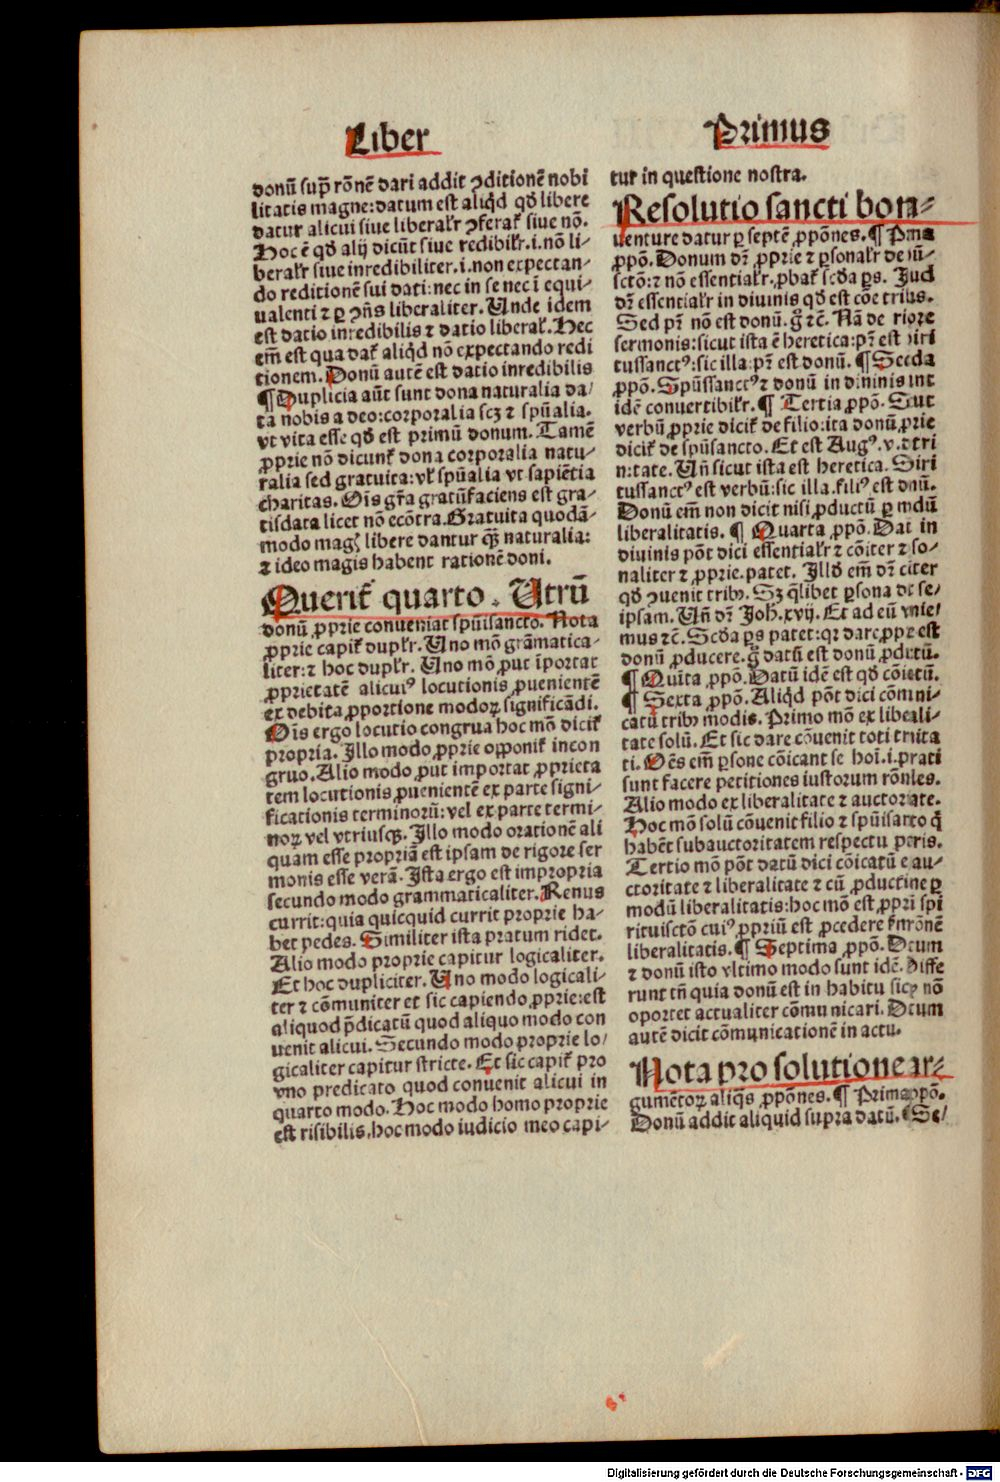 Liber
Primus
donū sup̄ rōnē dari addit ꝯditionē nobi
litatis magne:datum est aliq̇d qd̓ libere
datur alicui siue liberalr̓ ꝯferat̓ siue nō.
Hoc ē qd̓ alij dicūt siue redibilr̓.i.nō li-
beralr̓ siue inredibiliter.i.non expectan-
do reditionē sui dati:nec in se nec ī equi-
ualenti ⁊ ꝑ ꝯñs liberaliter. Unde idem
est datio inredibilis ⁊ datio liberal̓. Hec
em̄ est qua dat̓ aliq̇d nō expectando redi
tionem. Donū autē est datio inredibilis
¶ Duplicia aūt sunt dona naturalia da/
ta nobis a deo:corporalia scꝫ ⁊ spūalia.
vt vita esse qd̓ est primū donum. Tamē
ꝓprie nō dicunt̓ dona corporalia natu-
ralia sed gratuita:vl̓ spūalia vt sapiētia
charitas. Oīs gr̄a gratūfaciens est gra-
tisdata licet nō ecōtra. Gratuita quodā-
modo magꝭ libere dantur q̄ꝫ naturalia:
⁊ ideo magis habent rationē doni.
Querit̓ quarto. Utrū
donū ꝓprie conueniat spūisancto. Nota
ꝓprie capit̓ duplr̓. Uno mō grāmatica-
liter:⁊ hoc duplr̓. Uno mō ꝓut īportat
ꝓprietatē alicuiꝰ locutionis ꝓuenientē
ex debita ꝓportione modoꝝ significādi.
Oīs ergo locutio congrua hoc mō dicit̓
propria. Illo modo ꝓprie opponit̓ incon
gruo. Alio modo ꝓut importat ꝓprieta
tem locutionis ꝓuenientē ex parte signi-
ficationis terminorū:vel ex parte termi-
noꝝ vel vtriusqꝫ. Illo modo orationē ali
quam esse propriā est ipsam de rigore ser
monis esse verā. Ista ergo est impropria
secundo modo grammaticaliter. Renus
currit:quia quicquid currit proprie ha-
bet pedes. Similiter ista pratum ridet.
Alio modo proprie capitur logicaliter.
Et hoc dupliciter. Uno modo logicali-
ter ⁊ cōmuniter et sic capiendo ꝓprie:est
aliquod p̄dicatū quod aliquo modo con
uenit alicui. Secundo modo proprie lo/
gicaliter capitur stricte. Et sic capit̓ pro
vno predicato quod conuenit alicui in
quarto modo. Hoc modo homo proprie
est risibilis.hoc modo iudicio meo capi-
tur in questione nostra.
Resolutio sancti bona-
uenture datur ꝑ septē ꝓpōnes. ¶ Pma
ꝓpō. Donum dr̄ ꝓprie ⁊ ꝑsonalr̓ de
sctō:⁊ nō essentialr̓.ꝓbat̓ scd̓a ꝑs. Illud
dr̄ essentialr̓ in diuinis qd̓ est cōe tribꝰ.
Sed pr̄ nō est donū. g̊ ⁊c̄. Nā de rigore
sermonis:sicut ista ē heretica:pr̄ est spiri
tussanctꝰ:sic illa:pr̄ est donū. ¶ Secda
ꝓpō. Spūssanctꝰ ⁊ donū in diuinis int
idē conuertibilr̓. ¶ Tertia ꝓpō. Sicut
verbū ꝓprie dicit̓ de filio:ita donū ꝓprie
dicit̓ de spūsancto. Et est Augꝰ.v.de tri
nitate. Uñ sicut ista est heretica. Spiri
tussanctꝰ est verbū:sic illa.filiꝰ est donū.
Donū em̄ non dicit nisi ꝓductū ꝑ modū
liberalitatis. ¶ Quarta ꝓpō. Dari in
diuinis pōt dici essentialr̓ ⁊ cōiter ⁊ ꝑso/
naliter ⁊ ꝓprie. patet. Illd̓ em̄ dr̄ cōiter
qd̓ ꝯuenit tribꝰ. Sꝫ q̇libet ꝑsona dat se/
ipsam. Uñ dr̄ Joh.xvij. Et ad eū venie/
mus ⁊c̄. Scd̓a ꝑs patet:qꝛ dare ꝓprie est
donū ꝓducere. g̊ datū est donū ꝓductū.
¶ Quīta ꝓpō. Datū idē est qd̓ cōicatū.
¶ Sexta ꝓpō. Aliq̇d pōt dici cōmni-
catū tribꝰ modis. Primo mō ex liberali-
tate solū. Et sic dare cōuenit toti trinita
ti. Oēs em̄ ꝑsone cōicant se hoī.i.parati
sunt facere petitiones iustorum rōnales.
Alio modo ex liberalitate ⁊ auctoritate.
Hoc mō solū cōuenit filio ⁊ spūisancto q̇
habēt subauctoritatem respectu patris.
Tertio mō pōt datū dici cōicatū ex au-
ctoritate ⁊ liberalitate ⁊ cū ꝓductiōne ꝑ
modū liberalitatis:hoc mō est ꝓpriū spi
rituisctō cuiꝰ ꝓpriū est ꝓcedere ẜm rōnē
liberalitatis. ¶ Septima ꝓpō. Datum
⁊ donū isto vltimo modo sunt idē. Diffe
runt tñ quia donū est in habitu sic ꝙ nō
oportet actualiter cōmunicari. Datum
autē dicit cōmunicationē in actu.
Nota pro solutione ar-
gumētoꝝ aliq̄s ꝓpōnes. ¶ Prima ꝓpō.
Donū addit aliquid supra datū. ¶ Se/
Digitalisierung gefördert durch die Deutsche Forschungsgemeinschaft - DFG